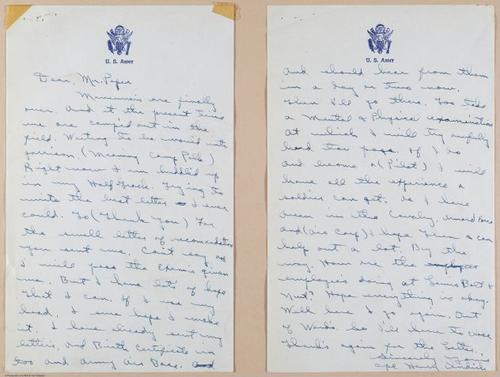 U. S. ARMY
Dear, Mr.
are finally
over. And at the present time
we are camped out in the
field. Waiting to be moved into
garrison. (Meaning Camp
Right now I am huddled up
in my Half Track. Trying to
write the best letter I ever
could. To (Thank you) For
the swell letter of recomendation
you sent me. Can't say as
I will pass the given
me. But I have lots of hope
that I can. If I use my
head. I sure hope I make
it. I have already sent my
letters, and Birth Certificate in
too and Army Air Base. and
U. S. ARMY
And should hear from them
in a day or two now.
Then I'll go there. Too take
a Mental & Physical examination
At which I will try awfully
hard too pass. If I do
and become a (Pilot) I will
have all the experience a
soldier can get. As I have
been in the Cavalry,
and (Air Corp) I hope. Then I can
help out a lot. By the
way. How are the
employees doing at
Hope everything is okay.
Well here I go again. Out
of Words. So I'll have to close
thanks again for the letter.
Sincerely Yours
Henry